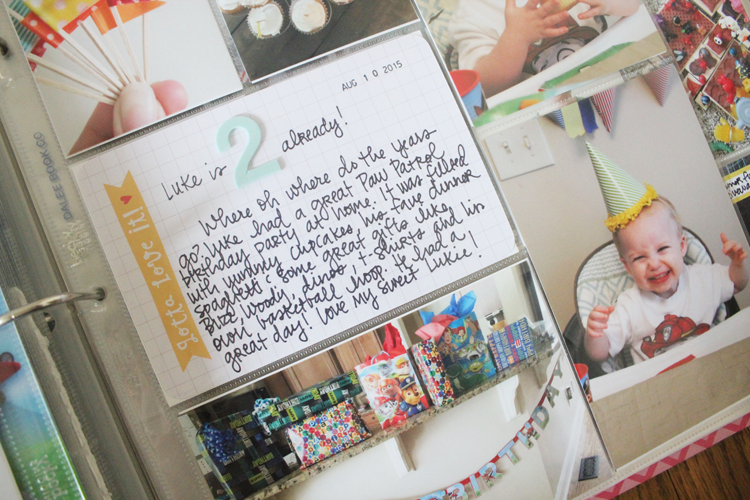 AUG 1 0 2015
Luke is 2 already!
Where oh where do the years
go? Luke had a great Paw Patrol
birthday party at home. It was
with yummy cupcakes, his fave dinner
spaghetti, some great gifts like
Buzz, Woody, dinos, t-shirts and his
own basketball hoop. He had a
great day! Love my sweet Lukie!
gotta love it!
BIRTHDAY